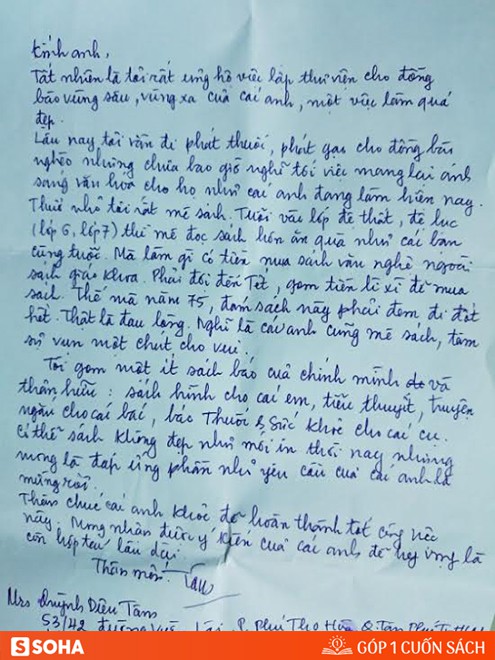 Kính anh,
Tất nhiên là tôi rất ủng hộ việc lập thư viện cho đồng
bào vùng sâu, vùng xa của các anh, một việc làm quá
đẹp.
Lâu nay tôi vẫn đi phát thuốc, phát gạo cho đồng bào
nghèo nhưng chưa bao giờ nghĩ tới việc mang lại ánh
sáng văn hóa cho họ như các anh đang làm hiện nay.
Thuở nhỏ tôi rất mê sách. Tuổi vào lớp đệ thất, đệ lục
(lớp 6, lớp 7) thì mê đọc sách hơn ăn quà như các bạn
cùng tuổi. Mà làm gì có tiền mua sách văn nghệ ngoài
sách giáo khoa. Phải đợi đến Tết, gom tiền lì xì để mua
sách. Thế mà năm 75, đám sách này phải đem đi đốt
hết. Thật là đau lòng. Nghĩ là các anh cũng mê sách, tâm
sự vụn một chút cho vui.
Tôi gom một ít sách báo của chính mình và
thân hữu: sách hình cho các em, tiểu thuyết, truyện
ngắn cho các bác, báo Thuốc & Sức Khỏe cho các cụ.
Có thể sách không đẹp như mới in thời nay nhưng
mong là đáp ứng phần nhỏ yêu cầu của các anh là
mừng rồi.
Thân chúc các anh khỏe để hoàn thành tốt công việc
này. Mong nhận được ý kiến của các anh để hy vọng là
còn hợp tác lâu dài.
Thân mến. Tâm
Mrs Quỳnh Diêu Tâm
53/42 đường P. Phú Thọ Hòa Q. Tân Phú
SOHA
GÓP 1 CUỐN SÁCH